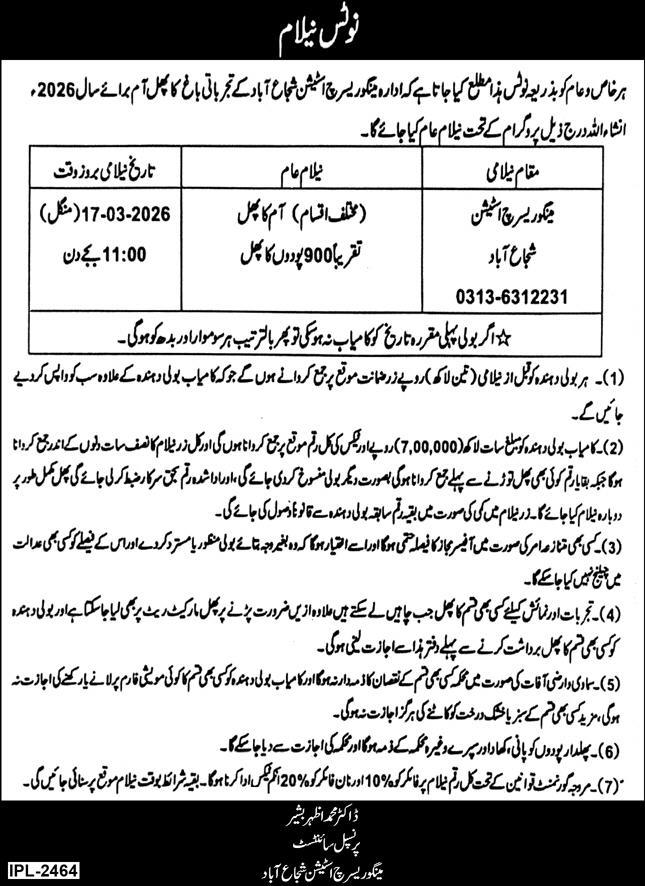 نوٹس نیلام
ہر خاص و عام کو بذریعہ نوٹس ہذا مطلع کیا جاتا ہے کہ ادارہ مینگو ریسرچ اسٹیشن شجاع آباد کے تجرباتی باغ کا پھل آم برائے سال 2026ء
انشاء اللہ درج ذیل پروگرام کے تحت نیلام عام کیا جائے گا۔
مقام نیلامی	نیلام عام	تاریخ نیلامی بروز وقت
مینگو ریسرچ اسٹیشن	(مختلف اقسام) آم کا پھل	17-03-2026 (منگل)
شجاع آباد	تقریباً 900 پودوں کا پھل	11:00 بجے دن
0313-6312231
☆ اگر بولی پہلی مقررہ تاریخ کو کامیاب نہ ہو سکی تو پھر بالترتیب ہر سوموار اور بدھ کو ہو گی۔
(1)۔ ہر بولی دہندہ کو قبل از نیلامی (تین لاکھ) روپے زر ضمانت موقع پر جمع کروانے ہوں گے جو کہ کامیاب بولی دہندہ کے علاوہ سب کو واپس کر دیے
جائیں گے۔
(2)۔ کامیاب بولی دہندہ کو مبلغ سات لاکھ (7,00,000) روپے اور ٹیکس کی کل رقم موقع پر جمع کروانا ہوں گی اور کل زر نیلام کا نصف سات دنوں کے اندر جمع کروانا
ہو گا جبکہ بقایا رقم کوئی بھی پھل توڑنے سے پہلے جمع کروانا ہو گی بصورت دیگر بولی منسوخ کر دی جائے گی، اور ادا شدہ رقم بحق سرکار ضبط کر لی جائے گی پھل مکمل طور پر
دوبارہ نیلام کیا جائے گا۔ زر نیلام میں کمی کی صورت میں بقیہ رقم سابقہ بولی دہندہ سے قانوناً وصول کی جائے گی۔
(3)۔ کسی بھی متنازعہ امر کی صورت میں آفیسر مجاز کا فیصلہ حتمی ہو گا اور اسے اختیار ہو گا کہ وہ بغیر وجہ بتائے بولی منظور یا مسترد کر دے اور اس کے فیصلے کو کسی بھی عدالت
میں چیلنج نہیں کیا جا سکے گا۔
(4)۔ تجربات اور نمائش کیلئے کسی بھی قسم کا پھل جب چاہیں لے سکتے ہیں علاوہ ازیں ضرورت پڑنے پر پھل مارکیٹ ریٹ پر بھی لیا جا سکتا ہے اور بولی دہندہ
کو کسی بھی قسم کا پھل برداشت کرنے سے پہلے دفتر ہذا سے اجازت لینی ہو گی۔
(5)۔ سماوی و ارضی آفات کی صورت میں محکمہ کسی بھی قسم کے نقصان کا ذمہ دار نہ ہو گا اور کامیاب بولی دہندہ کو کسی بھی قسم کا کوئی مویشی فارم پر لانے یا رکھنے کی اجازت نہ
ہو گی، مزید کسی بھی قسم کے سبز یا خشک درخت کو کاٹنے کی ہرگز اجازت نہ ہو گی۔
(6)۔ پھلدار پودوں کو پانی، کھاد اور سپرے وغیرہ محکمہ کے ذمہ ہو گا اور محکمہ کی اجازت سے دیا جا سکے گا۔
(7)۔ مروجہ گورنمنٹ قوانین کے تحت کل رقم نیلام پر فائلر کو 10% اور نان فائلر کو 20% انکم ٹیکس ادا کرنا ہو گا۔ بقیہ شرائط بوقت نیلام موقع پر سنائی جائیں گی۔
ڈاکٹر محمد اظہر بشیر
پرنسپل سائنٹسٹ
مینگو ریسرچ اسٹیشن شجاع آباد
IPL-2464